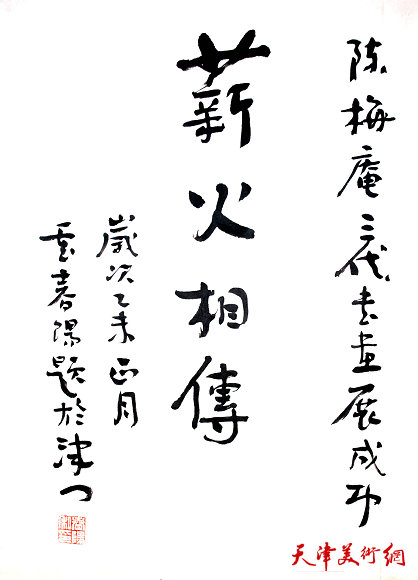 陈梅庵三代书画展成功
薪火相傳
歲次乙未正月
霍春陽題於津门
天津美術網